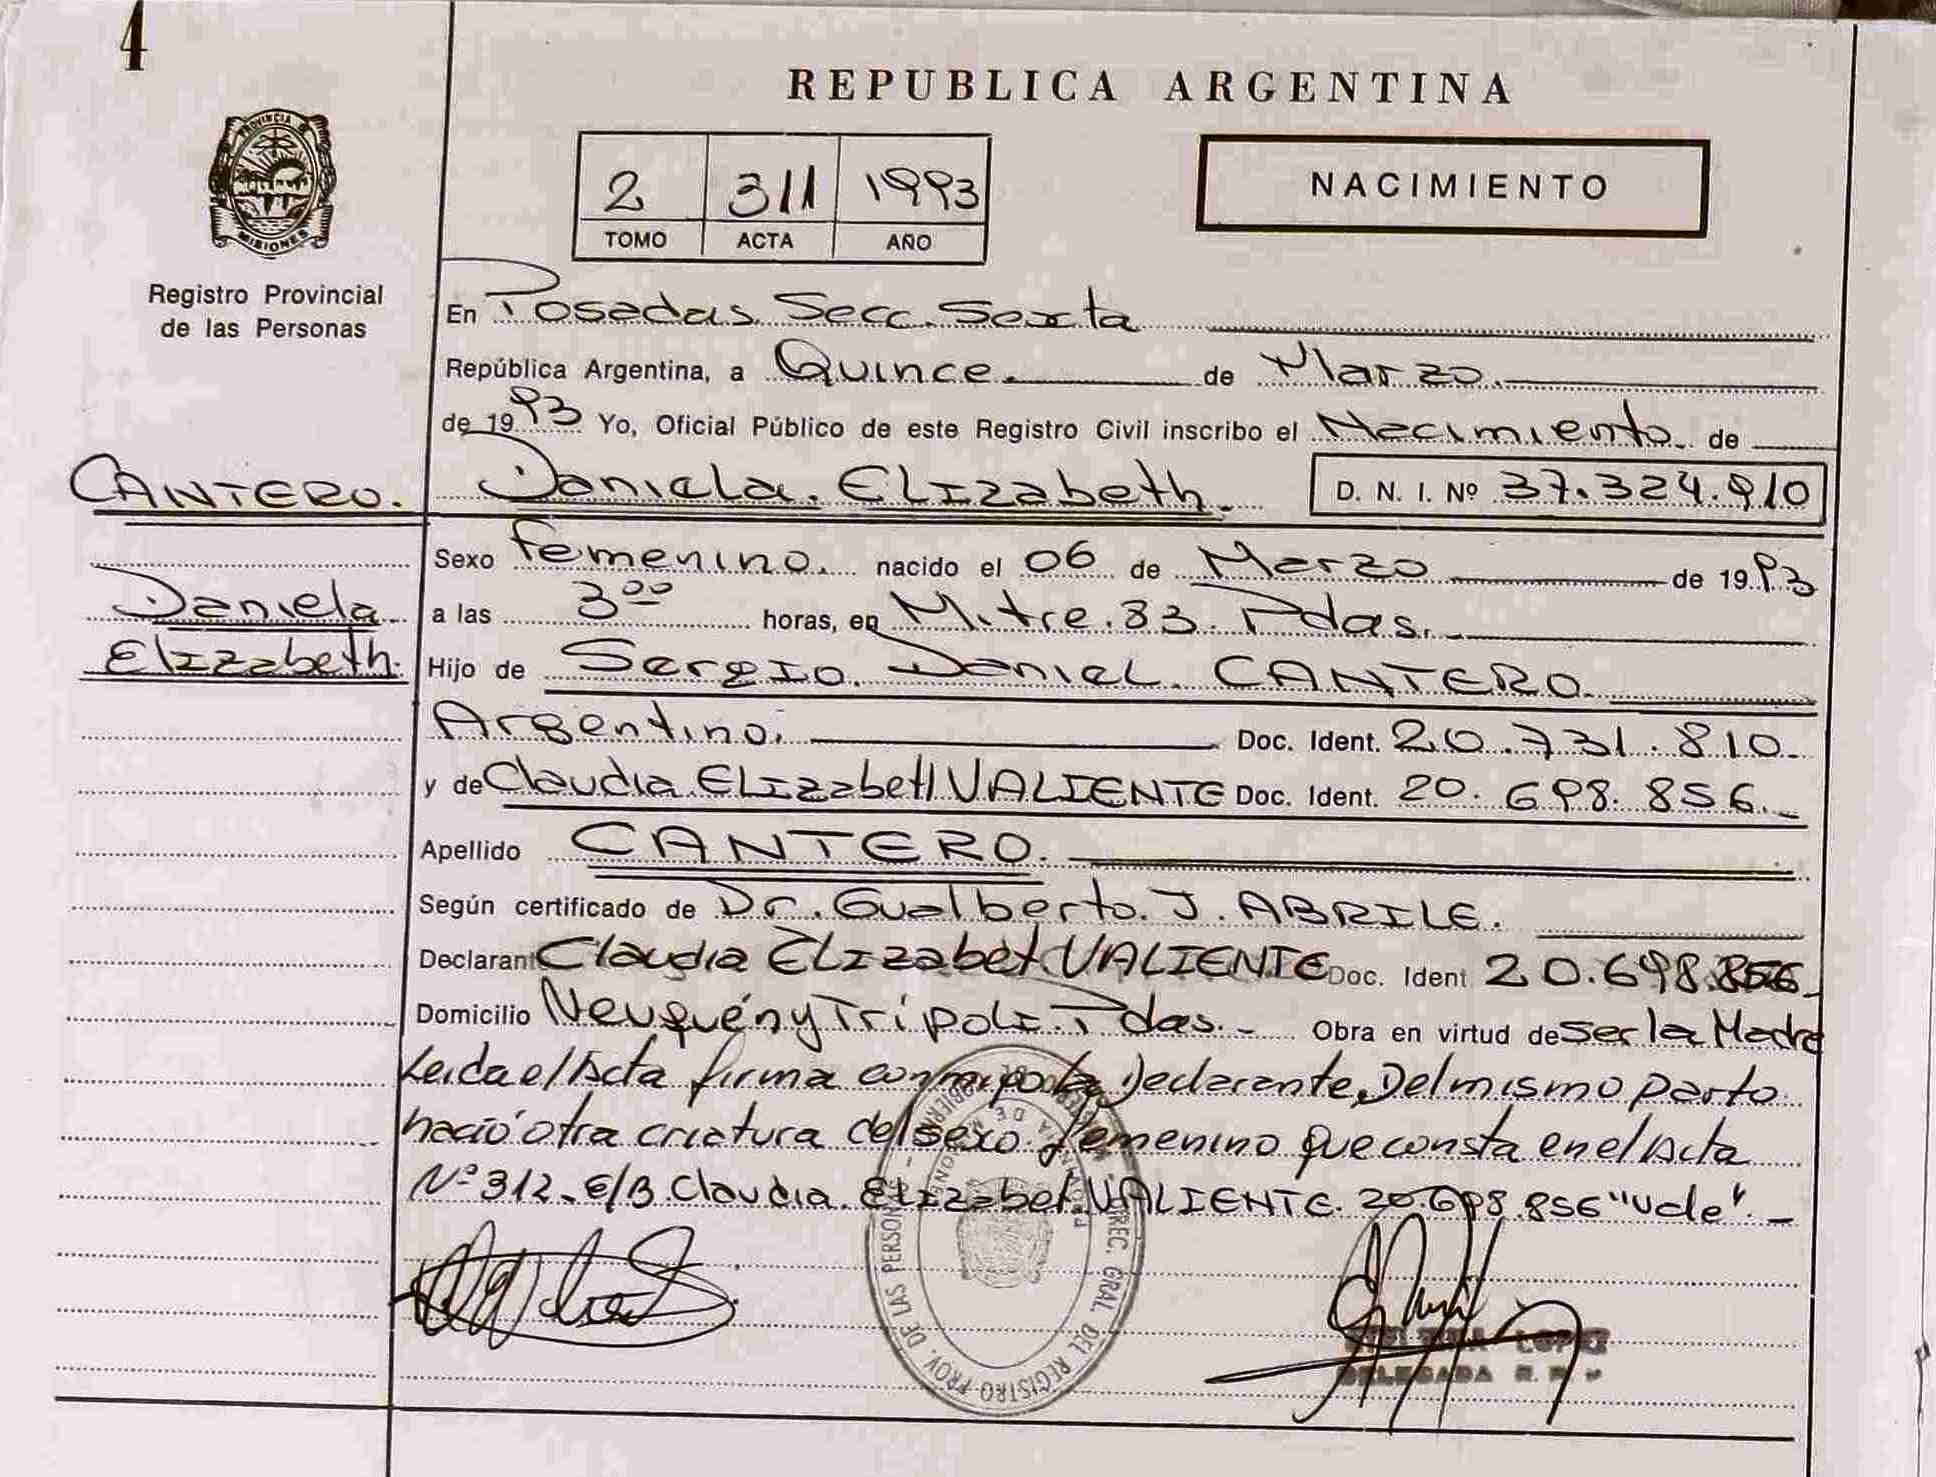 4
REPUBLICA ARGENTINA
PROVINCIA DE
MISIONES
2 311 1993
TOMO ACTA AÑO
NACIMIENTO
Registro Provincial
de las Personas
En Posadas Secc. Sexta
República Argentina, a Quince de Marzo
de 1993 Yo, Oficial Público de este Registro Civil inscribo el Nacimiento de
CANTERO. Daniela. ELIzabeth. D. N. I. Nº 37.324.910
Sexo femenino. nacido el 06 de Marzo de 1993
Daniela
a las 3⁰⁰ horas, en Mitre.83. Pdas.
Elizabeth. Hijo de Sergio. Daniel. CANTERO.
Argentino. Doc. Ident. 20.731.810
y de Claudia. ELIzabeth VALIENTE Doc. Ident. 20.698.856.
Apellido CANTERO.
Según certificado de Dr. Gualberto. J. ABRILE.
Declarant Claudia ELIzabet. VALIENTE Doc. Ident 20.698.856
Domicilio Neuquén y Trípoli. Pdas. Obra en virtud de Ser la Madre
Leida el Acta firma conmigo la Declarante. Del mismo parto
nació otra criatura del sexo femenino que consta en el Acta
Nº 312. E/B. Claudia. Elizabet. VALIENTE. 20.698.856 "Vale".
DIREC. GRAL. DEL REGISTRO PROV. DE LAS PERSONAS
LOPEZ
DELEGADA R. P.